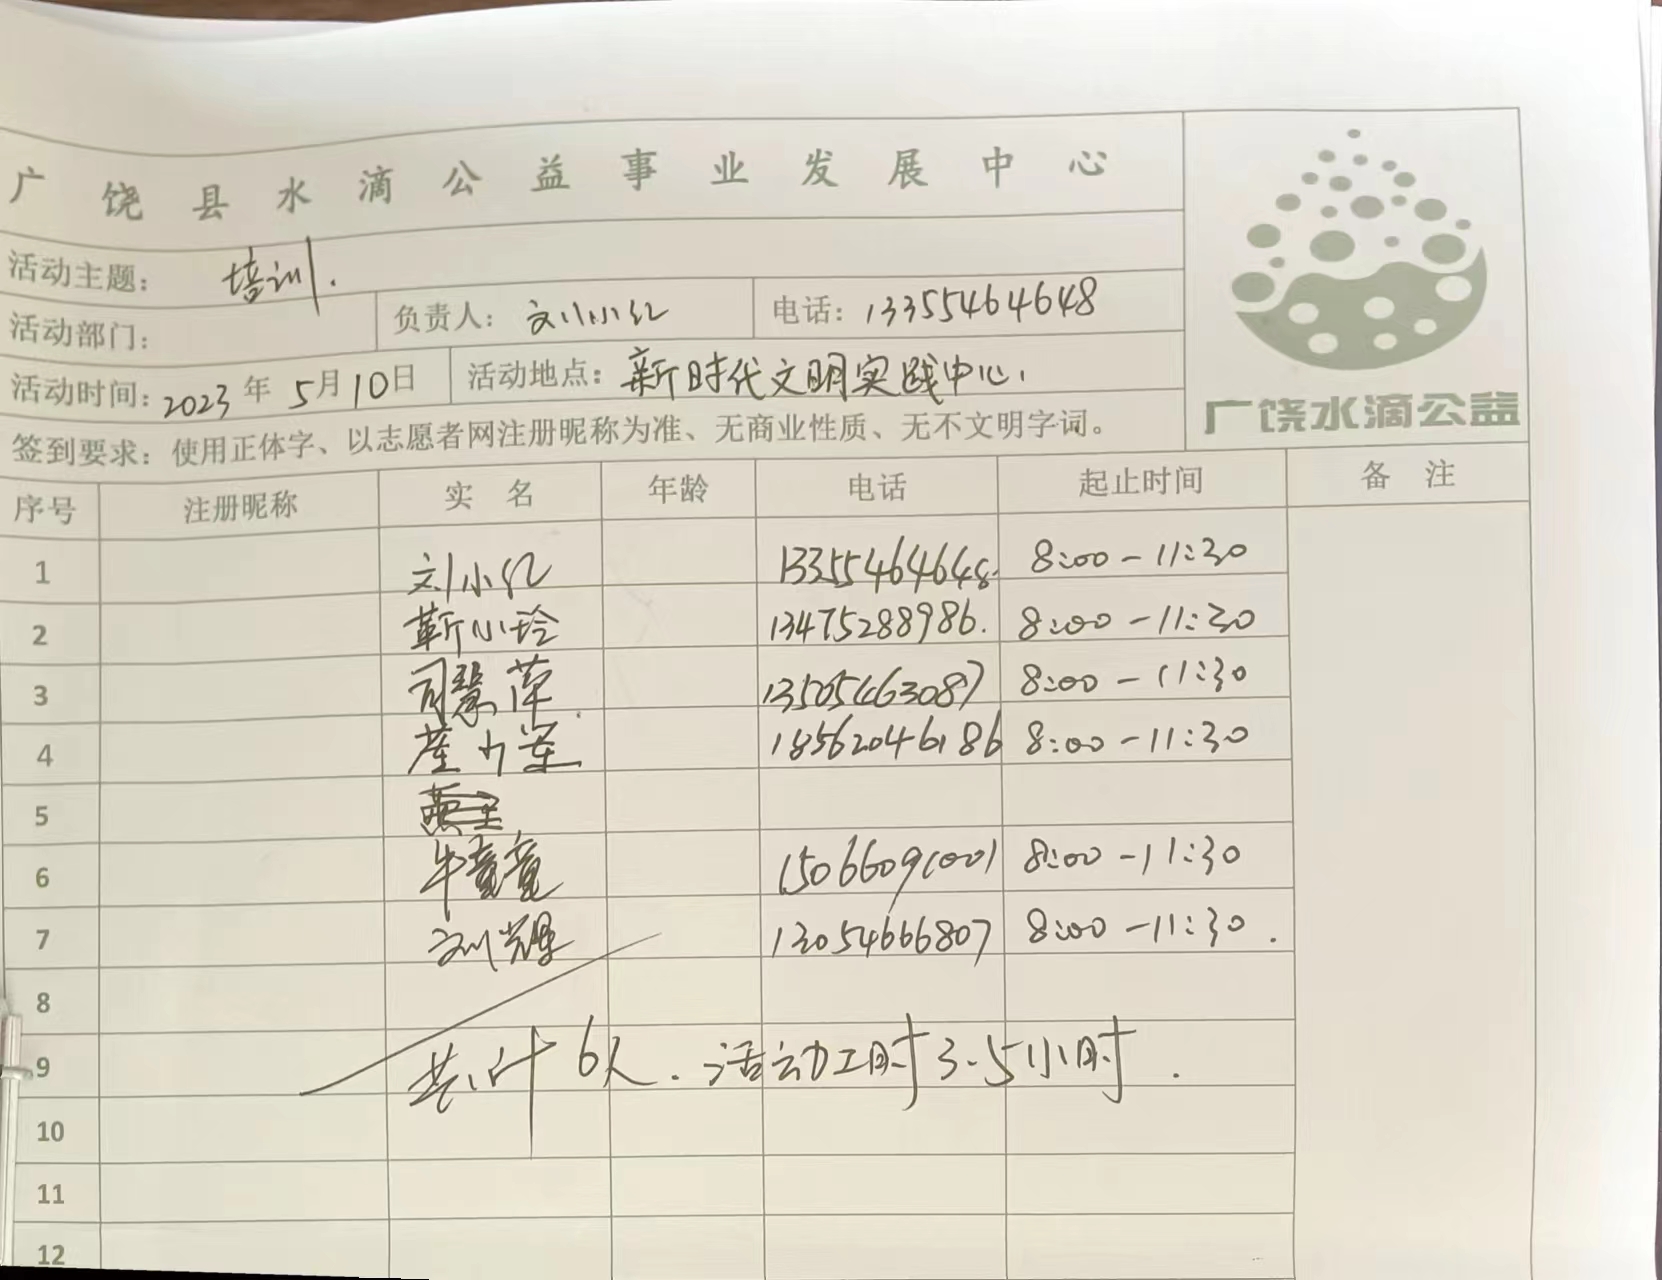 广饶县水滴公益事业发展中心
活动主题： 培训.
活动部门： 负责人：刘小红 电话：13355464648
活动时间：2023年5月10日 活动地点：新时代文明实践中心.
签到要求：使用正体字、以志愿者网注册昵称为准、无商业性质、无不文明字词。
广饶水滴公益
序号 注册昵称 实 名 年龄 电话 起止时间 备 注
1 刘小红 13355464648. 8:00-11:30
2 靳小玲 13475288986. 8:00-11:30
3 司慧萍 13505463087 8:00-11:30
4 18562046186 8:00-11:30
5
6 牛童童 15066091001 8:00-11:30
7 刘辉 13054666807 8:00-11:30.
8
9 共计6人.活动工时3.5小时.
10
11
12